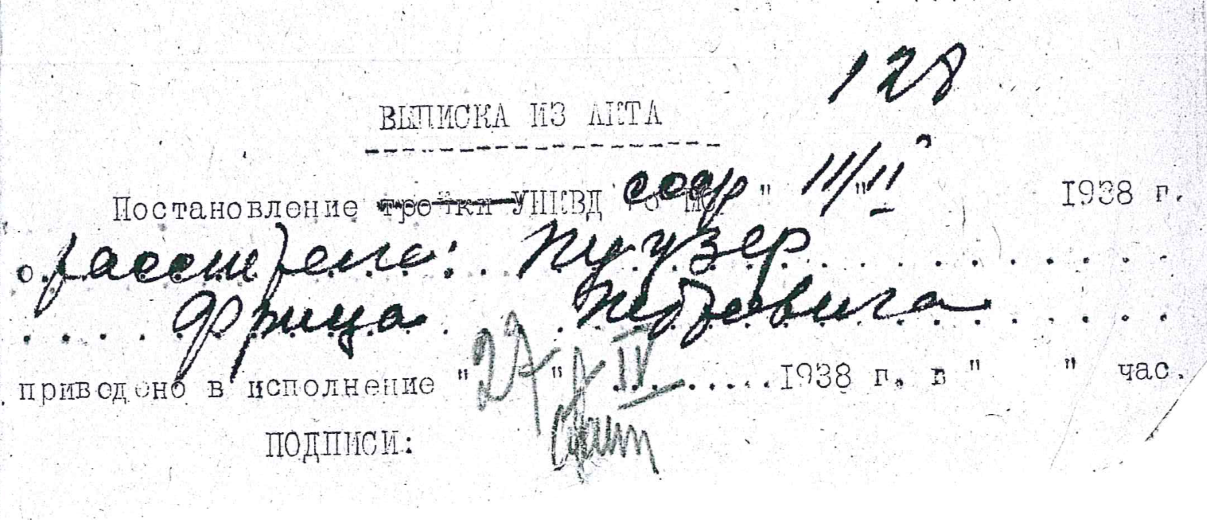 128
ВЫПИСКА ИЗ АКТА
Постановление тройки УНКВД " 11/II 1938 г.
о расстреле: Пуузер
Фрица Петровича
приведено в исполнение "27" IV 1938 г. в " " час.
ПОДПИСИ: